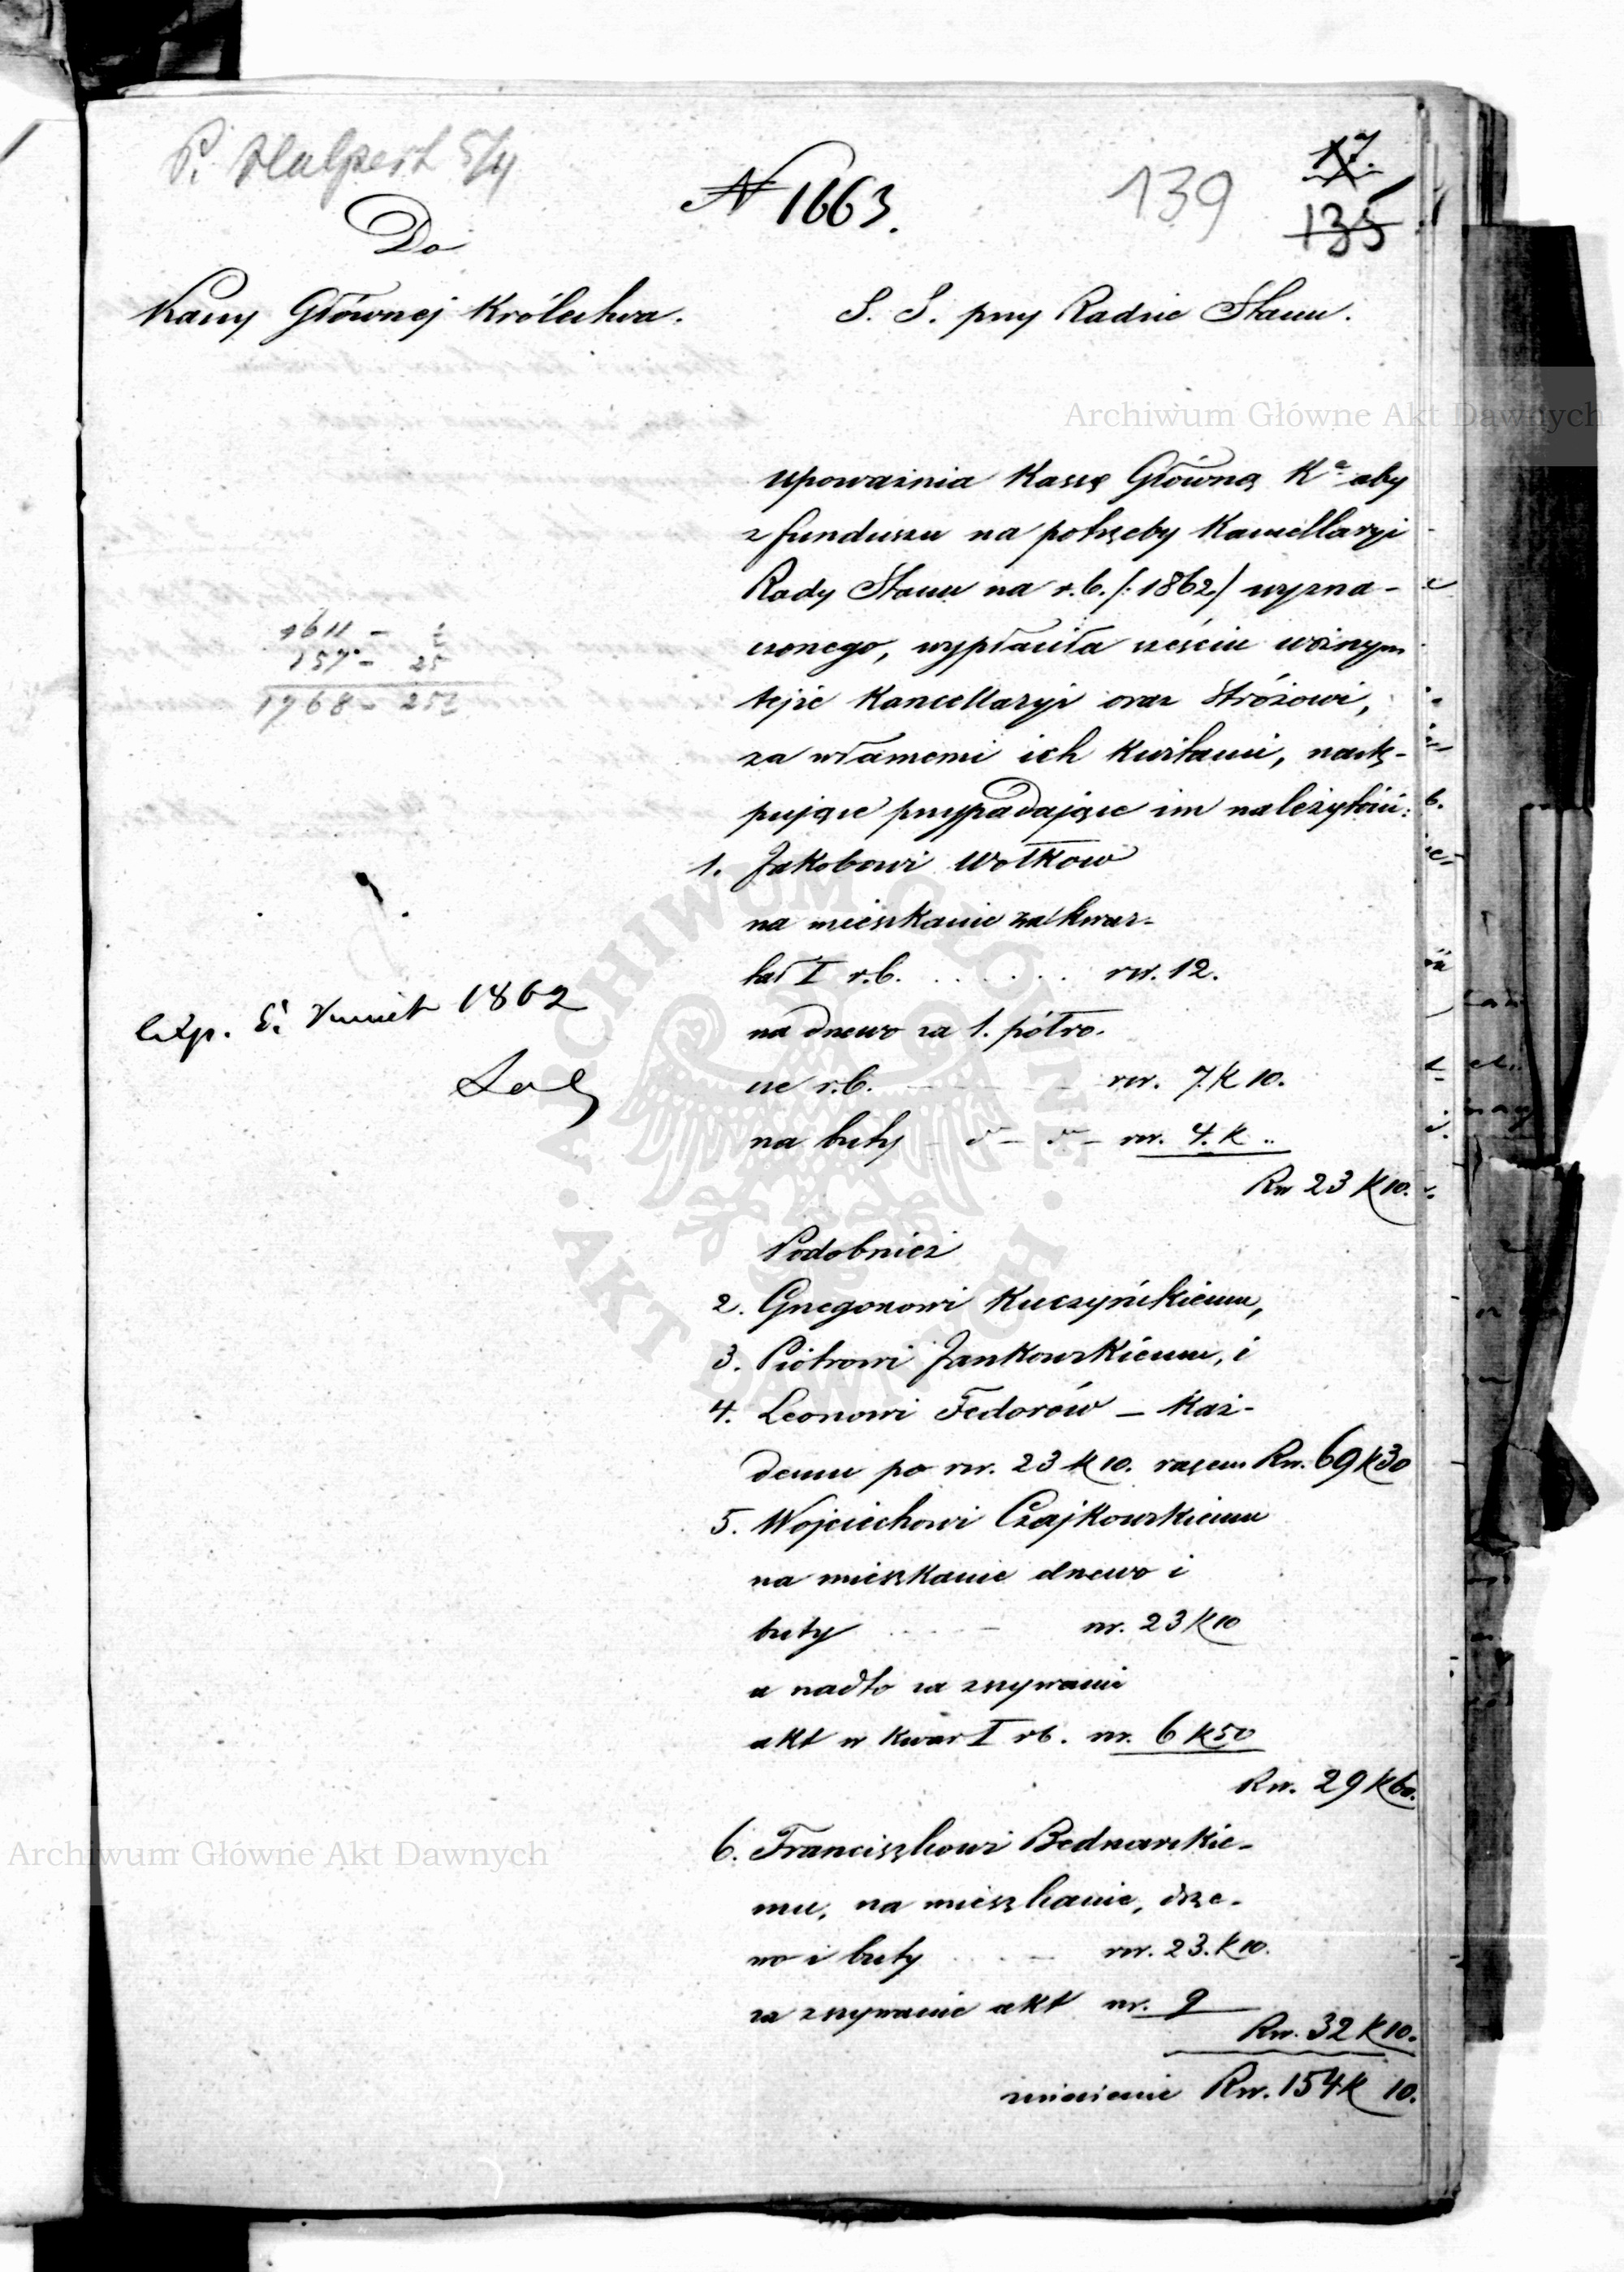 P. Halpert 5/4
N 1663.
139
17.
135
Do
Kassy Głównej Królestwa.
S. S. przy Radzie Stanu.
upoważnia Kassę Główną Kа aby
z funduszu na potrzeby Kancellaryi
Rady Stanu na r.b. /:1862/ wyzna-
czonego, wypłaciła sześciu woźnym
tejże Kancellaryi oraz Stróżowi,
za własnemi ich Kwitami, nastę-
pujące przypadające im należytości:
1611 -
157 - 25
1768 - 25½
1. Jakobowi Wołkow
na mieszkanie za kwar-
tał I r.b. . . . . . rsr. 12.
na drzewo za 1. półro-
cze r.b. - - - - rsr. 7. K 10.
na buty - d - d - rsr. 4. K ..
Rsr 23 K 10.
Exp. 5. Kwiet 1862
Podobnież
2. Grzegorzowi Kuczyńskiemu,
3. Piotrowi Jankowskiemu, i
4. Leonowi Fedorów - każ-
demu po rsr. 23 K 10. razem Rsr. 69 K 30
5. Wojciechowi Czajkowskiemu
na mieszkanie drzewo i
buty . . . . - rsr. 23 K 10
a nadto za zszywanie
akt w kwar I rb. rsr. 6 K 50
Rsr. 29 K 60.
6. Franciszkowi Bednarskie-
mu, na mieszkanie, drze-
wo i buty . . - rsr. 23. K 10.
za zszywanie akt rsr. 9
Rsr. 32 K 10.
zniesienie Rsr. 154 K 10.
Archiwum Główne Akt Dawnych
Archiwum Główne Akt Dawnych
ARCHIWUM GŁÓWNE · AKT DAWNYCH ·